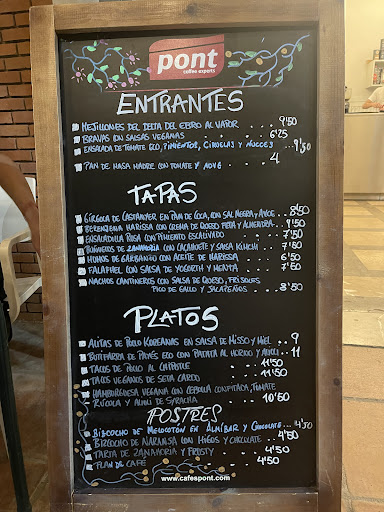 pont
coffee experts
ENTRANTES
MEJILLONES DEL DELTA DEL EBRO AL VAPOR ... 9'50
BRAVAS EN SALSAS VEGANAS ... 6'25
ENSALADA DE TOMATE ECO, PIMIENTOS, CIRUELAS Y NUECES ... 9'50
PAN DE MASA MADRE CON TOMATE Y AOVE ... 4
TAPAS
GÍRGOLA DE CASTANYER EN PAN DE COCA, CON SAL NEGRA Y AJOS ... 8'50
BERENJENA HARISSA CON CREMA DE QUESO FETA Y ALMENDRA ... 9'50
ENSALADILLA RUSA CON PIMIENTO ESCALIVADO ... 7'50
BUÑUELOS DE ZANAHORIA CON CACAHUETE Y SALSA KIMCHI ... 7'50
HUMUS DE GARBANZO CON ACEITE DE HARISSA ... 6'50
FALAFEL CON SALSA DE YOGURTH Y MENTA ... 7'50
NACHOS CANTINEROS CON SALSA DE QUESO, FRIJOLES
PICO DE GALLO Y JALAPEÑOS ... 8'50
PLATOS
ALITAS DE POLLO KOREANAS EN SALSA DE MISSO Y MIEL ... 9
BUTIFARRA DE PAYÉS ECO CON PATATA AL HORNO Y ALIOLI ... 11
TACOS DE POLLO AL CHIPOTLE ... 11'50
TACOS VEGANOS DE SETA CARDO ... 11'50
HAMBURGUESA VEGANA CON CEBOLLA CONFITADA, TOMATE
RÚCULA Y ALIOLI DE SYRACHA ... 10'50
POSTRES
BIZCOCHO DE MELOCOTÓN EN ALMÍBAR Y CHOCOLATE ... 4'50
BIZCOCHO DE NARANJA CON HIGOS Y CHOCOLATE ... 4'50
TARTA DE ZANAHORIA Y FROSTY ... 4'50
FLAN DE CAFÉ ... 4'50
www.cafespont.com